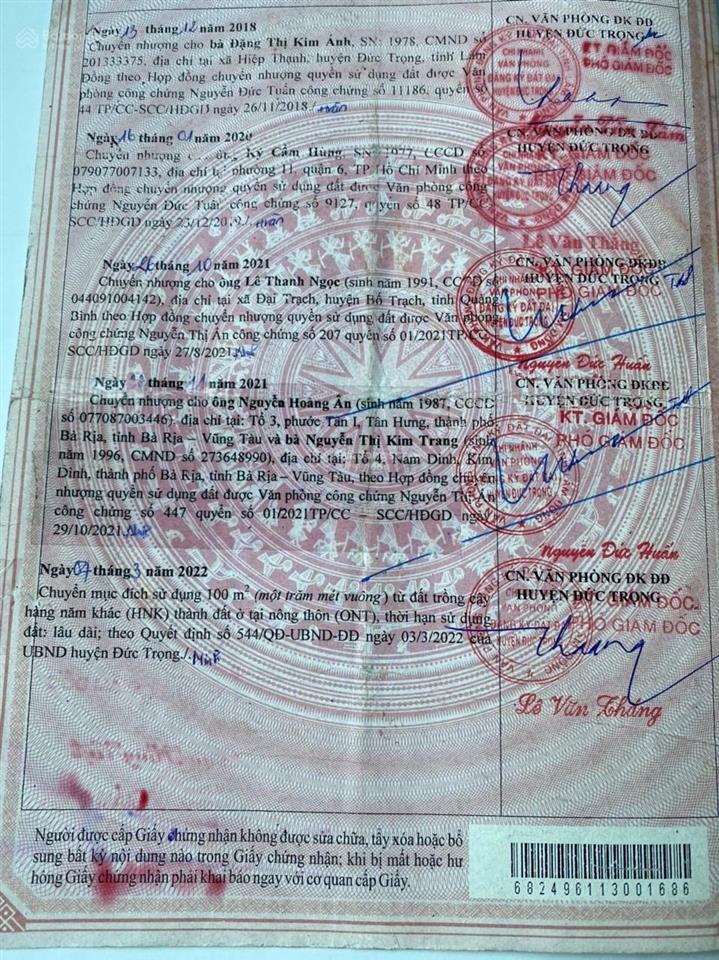 Ngày 13 tháng 12 năm 2018
Chuyển nhượng cho bà Đặng Thị Kim Ánh, SN: 1978, CMND số
201333375, địa chỉ tại xã Hiệp Thạnh, huyện Đức Trọng, tỉnh Lâm
Đồng theo Hợp đồng chuyển nhượng quyền sử dụng đất được Văn
phòng công chứng Nguyễn Đức Tuấn công chứng số 11186, quyển số
44 TP/CC-SCC/HĐGD ngày 26/11/2018./.
CN. VĂN PHÒNG ĐK ĐĐ
HUYỆN ĐỨC TRỌNG
KT GIÁM ĐỐC
PHÓ GIÁM ĐỐC
Ngày 16 tháng 01 năm 2020
Chuyển nhượng ông Kỳ Cẩm Hùng, SN 1977, CCCD số
079077007133, địa chỉ tại phường 11, quận 6, TP Hồ Chí Minh theo
Hợp đồng chuyển nhượng quyền sử dụng đất được Văn phòng công
chứng Nguyễn Đức Tuấn công chứng số 9127, quyển số 48 TP/CC-
SCC/HĐGD ngày 23/12/2019./.
CN. VĂN PHÒNG ĐK ĐĐ
HUYỆN ĐỨC TRỌNG
KT GIÁM ĐỐC
PHÓ GIÁM ĐỐC
Lê Văn Thắng
Ngày 26 tháng 10 năm 2021
Chuyển nhượng cho ông Lê Thanh Ngọc (sinh năm 1991, CCCD số
044091004142), địa chỉ tại xã Đại Trạch, huyện Bố Trạch, tỉnh Quảng
Bình theo Hợp đồng chuyển nhượng quyền sử dụng đất được Văn phòng
công chứng Nguyễn Thị Ấn công chứng số 207 quyển số 01/2021TP/CC-
SCC/HĐGD ngày 27/8/2021./.
CN. VĂN PHÒNG ĐKĐĐ
HUYỆN ĐỨC TRỌNG
KT. GIÁM ĐỐC
PHÓ GIÁM ĐỐC
Nguyễn Đức Huấn
Ngày tháng 11 năm 2021
Chuyển nhượng cho ông Nguyễn Hoàng Ân (sinh năm 1987, CCCD
số 077087003446), địa chỉ tại: Tổ 3, phước Tân 1, Tân Hưng, thành phố
Bà Rịa, tỉnh Bà Rịa – Vũng Tàu và bà Nguyễn Thị Kim Trang (sinh
năm 1996, CMND số 273648990), địa chỉ tại: Tổ 4, Nam Dinh, Kim
Dinh, thành phố Bà Rịa, tỉnh Bà Rịa – Vũng Tàu, theo Hợp đồng chuyển
nhượng quyền sử dụng đất được Văn phòng công chứng Nguyễn Thị Ấn
công chứng số 447 quyển số 01/2021TP/CC – SCC/HĐGD ngày
29/10/2021./.
CN. VĂN PHÒNG ĐKĐĐ
HUYỆN ĐỨC TRỌNG
KT. GIÁM ĐỐC
PHÓ GIÁM ĐỐC
Nguyễn Đức Huấn
Ngày 07 tháng 3 năm 2022
Chuyển mục đích sử dụng 100 m² (một trăm mét vuông) từ đất trồng cây
hàng năm khác (HNK) thành đất ở tại nông thôn (ONT), thời hạn sử dụng
đất: lâu dài; theo Quyết định số 544/QĐ-UBND-ĐĐ ngày 03/3/2022 của
UBND huyện Đức Trọng./.
CN. VĂN PHÒNG ĐK ĐĐ
HUYỆN ĐỨC TRỌNG
KT. GIÁM ĐỐC
PHÓ GIÁM ĐỐC
Lê Văn Thắng
Người được cấp Giấy chứng nhận không được sửa chữa, tẩy xóa hoặc bổ
sung bất kỳ nội dung nào trong Giấy chứng nhận; khi bị mất hoặc hư
hỏng Giấy chứng nhận phải khai báo ngay với cơ quan cấp Giấy.
682496113001686